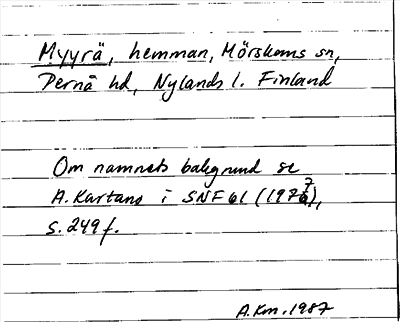 Myyrä, hemman, Mörskoms sn,
Pernå hd, Nylands l. Finland
Om namnets bakgrund se
A. Kartano i SNF 61 (1977),
s. 249 f.
A.Km. 1987